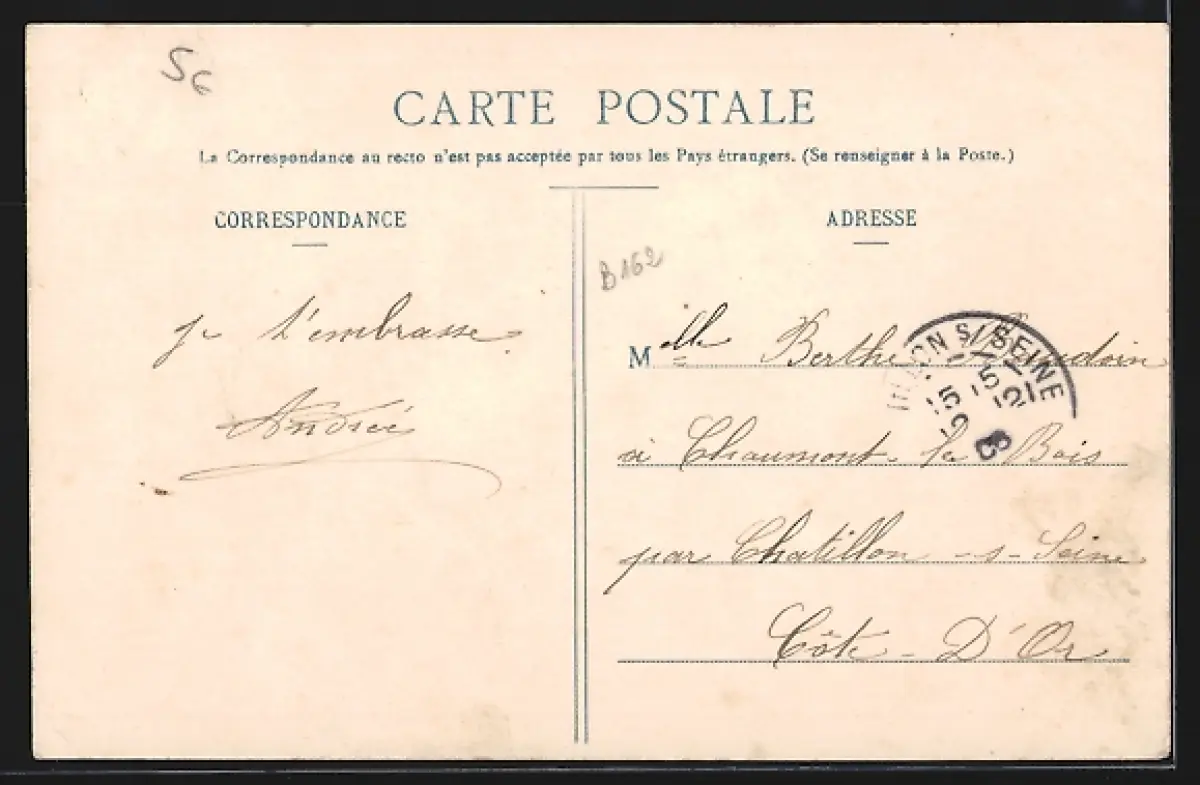 56
CARTE POSTALE
La Correspondance au recto n'est pas acceptée par tous les Pays étrangers. (Se renseigner à la Poste.)
CORRESPONDANCE
je t'embrasse
André
ADRESSE
B162
Mlle Berthe Baudoin
à Chaumont-le Bois
par Chatillon-s-Seine
Côte-D'Or
ILLON S/SEINE
15
08